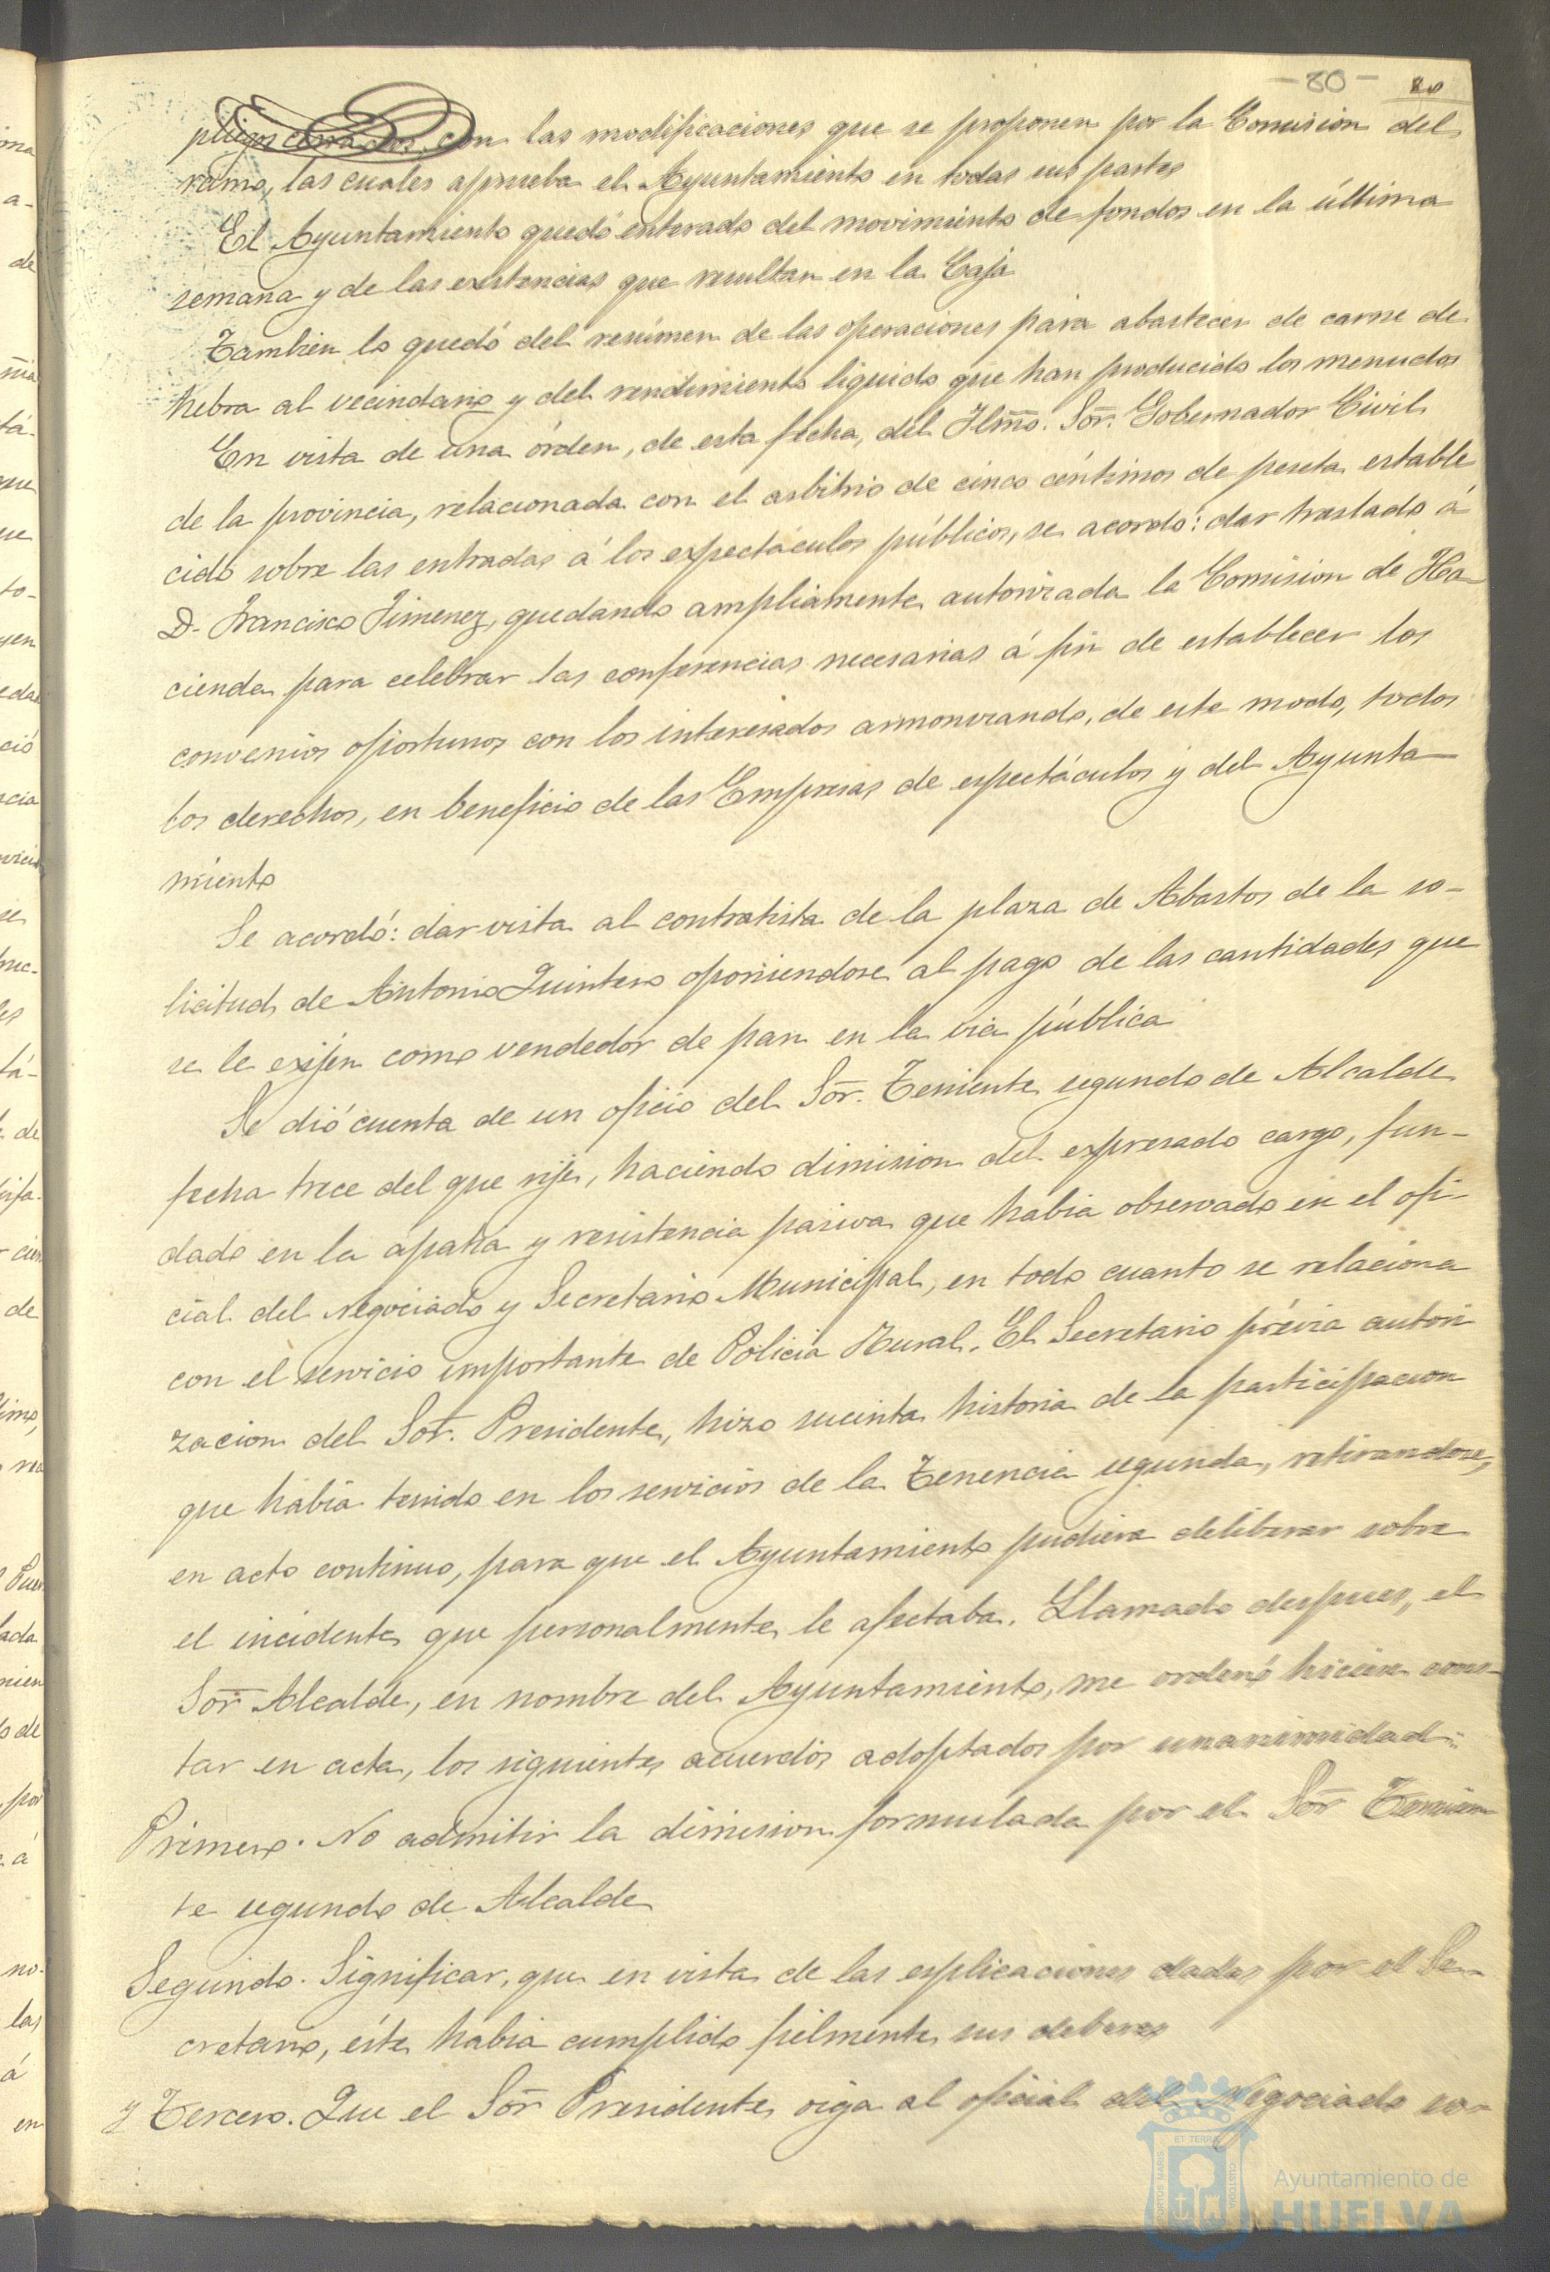 -80- 80
pliegos cerrados con las modificaciones que se proponen por la Comision del
ramo, las cuales aprueba el Ayuntamiento en todas sus partes
El Ayuntamiento quedó enterado del movimiento de fondos en la última
semana y de las existencias que resultan en la Caja
Tambien lo quedó del resúmen de las operaciones para abastecer de carne de
hebra al vecindario y del rendimiento liquido que han producido los menudos
En vista de una órden, de esta fecha, del Ilmo. Sor. Gobernador Civil
de la provincia, relacionada con el arbitrio de cinco céntimos de peseta estable
cido sobre las entradas á los espectáculos públicos, se acordó: dar traslado á
D. Francisco Jimenez, quedando ampliamente autorizada la Comision de Ha-
cienda para celebrar las conferencias necesarias á fin de establecer los
convenios oportunos con los interesados armonizando, de este modo, todos
los derechos, en beneficio de las Empresas de espectáculos y del Ayunta-
miento
Se acordó: dar vista al contratista de la plaza de Abastos de la so-
licitud de Antonio Quintero oponiendose al pago de las cantidades que
se le exijen como vendedor de pan en la via pública
Se dió cuenta de un oficio del Sor. Teniente segundo de Alcalde
fecha trece del que rije, haciendo dimision del expresado cargo, fun-
dado en la apatia y resistencia pasiva que habia observado en el ofi-
cial del Negociado y Secretario Municipal, en todo cuanto se relaciona
con el servicio importante de Policia Rural. El Secretario prévia autori
zacion del Sor. Presidente, hizo sucinta historia de la participacion
que habia tenido en los servicios de la Tenencia segunda, retirandose,
en acto continuo, para que el Ayuntamiento pudiera deliberar sobre
el incidente que personalmente le afectaba. Llamado despues, el
Sor Alcalde, en nombre del Ayuntamiento, me ordenó hiciera cons-
tar en acta, los siguientes acuerdos adoptados por unanimidad:
Primero. No admitir la dimision formulada por el Sor Tenien
te segundo de Alcalde
Segundo. Significar, que en vista de las esplicaciones dadas por el Se-
cretario, éste habia cumplido fielmente sus deberes
y Tercero. Que el Sor Presidente oiga al oficial del Negociado so-
Ayuntamiento de
HUELVA